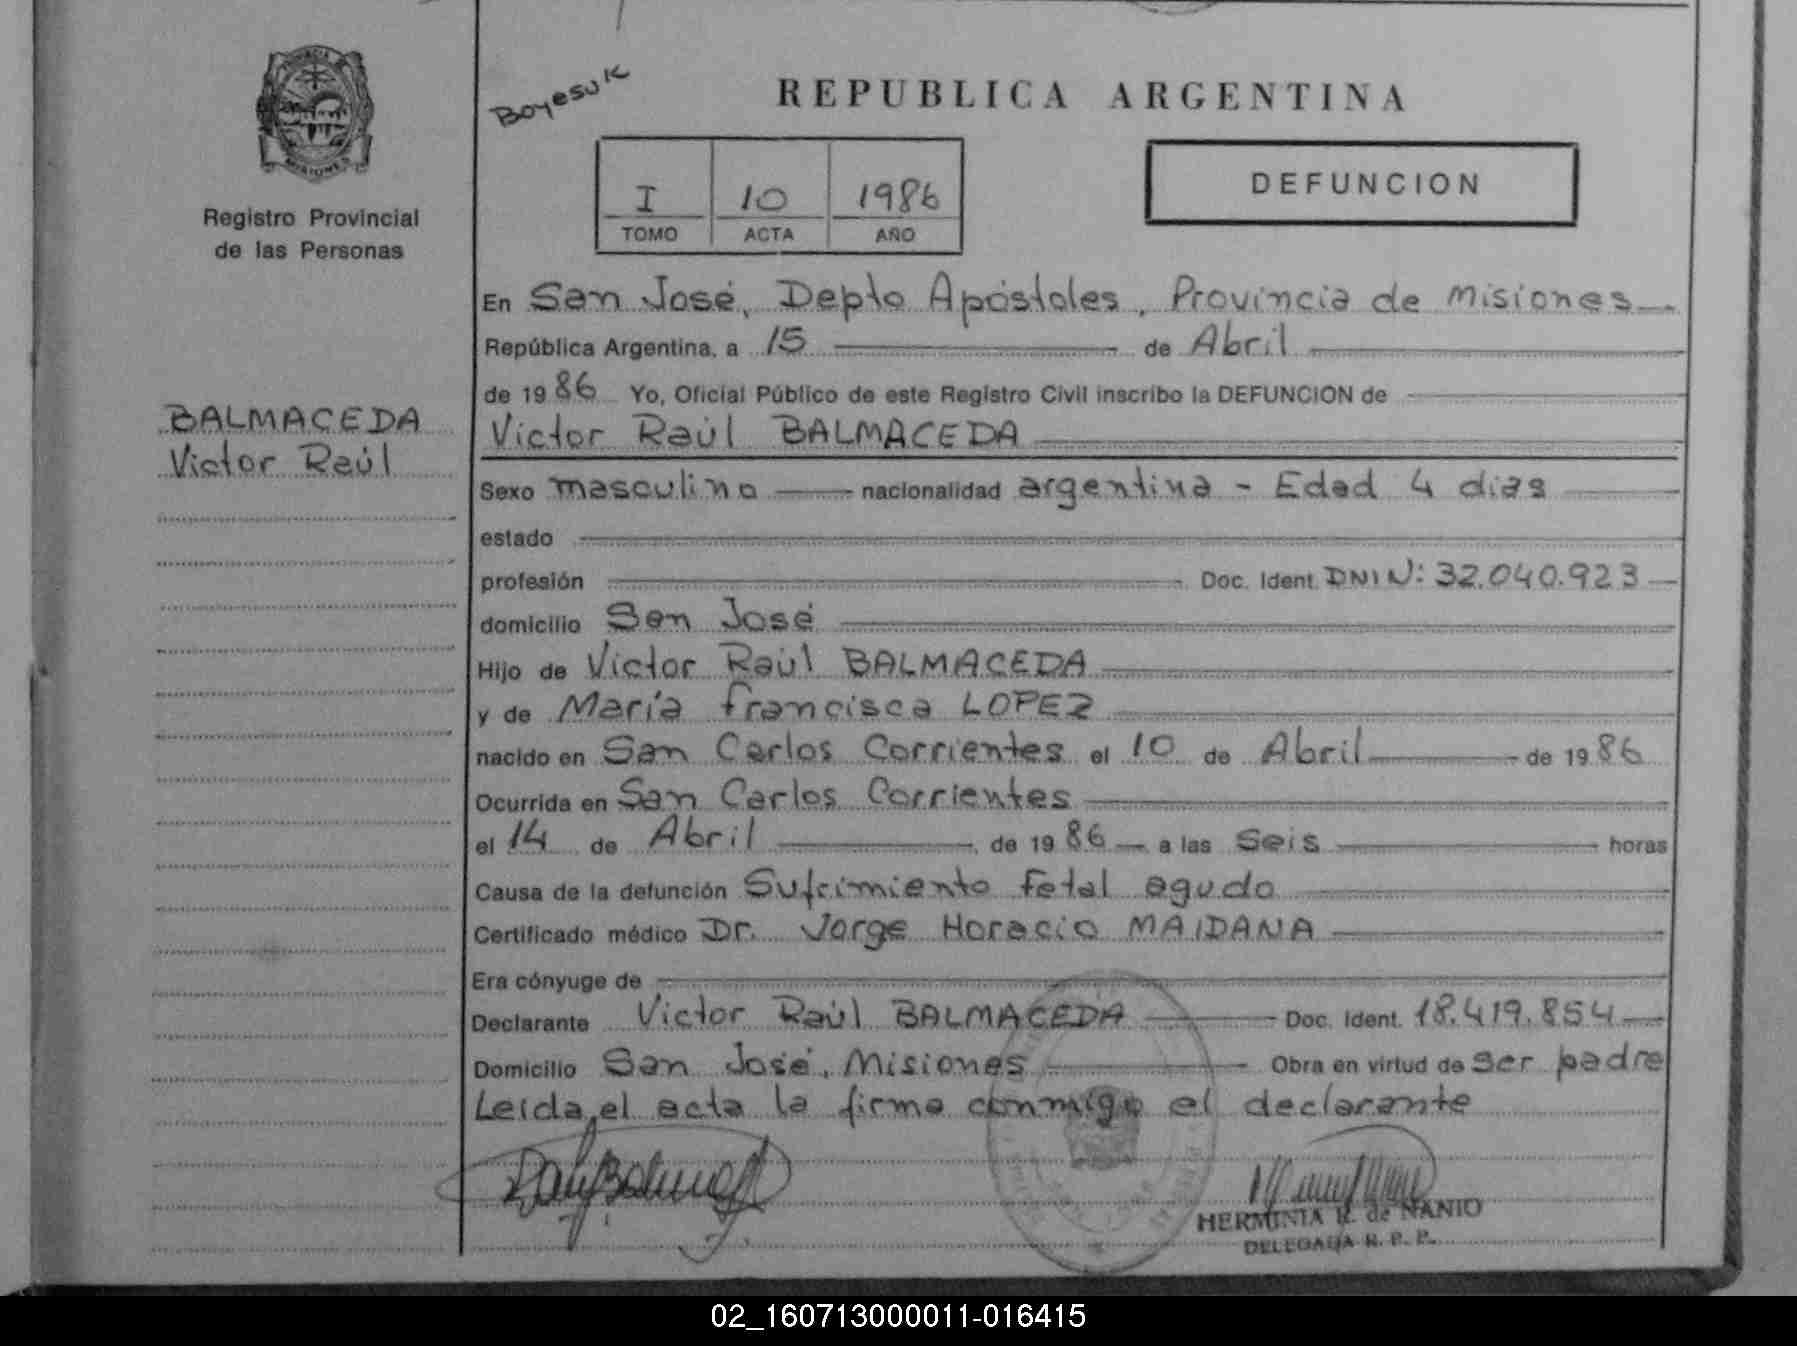 MISIONES
Registro Provincial
de las Personas
BALMACEDA
Victor Raúl
Boyesuk
REPUBLICA ARGENTINA
I 10 1986
TOMO ACTA AÑO
DEFUNCION
En San José, Depto Apóstoles, Provincia de Misiones
República Argentina, a 15 de Abril
de 1986 Yo, Oficial Público de este Registro Civil inscribo la DEFUNCION de
Victor Raúl BALMACEDA
Sexo masculino nacionalidad argentina - Edad 4 dias
estado
profesión Doc. Ident. DNI N: 32.040.923
domicilio San José
Hijo de Victor Raúl BALMACEDA
y de María Francisca LOPEZ
nacido en San Carlos Corrientes el 10 de Abril de 1986
Ocurrida en San Carlos Corrientes
el 14 de Abril de 1986 a las seis horas
Causa de la defunción Sufrimiento Fetal agudo
Certificado médico Dr. Jorge Horacio MAIDANA
Era cónyuge de
Declarante Victor Raúl BALMACEDA Doc. Ident. 18.419.854
Domicilio San José, Misiones Obra en virtud de ser padre
Leída el acta la firma conmigo el declarante
HERMINIA R. de NANIO
DELEGADA R. P. P.
02_160713000011-016415